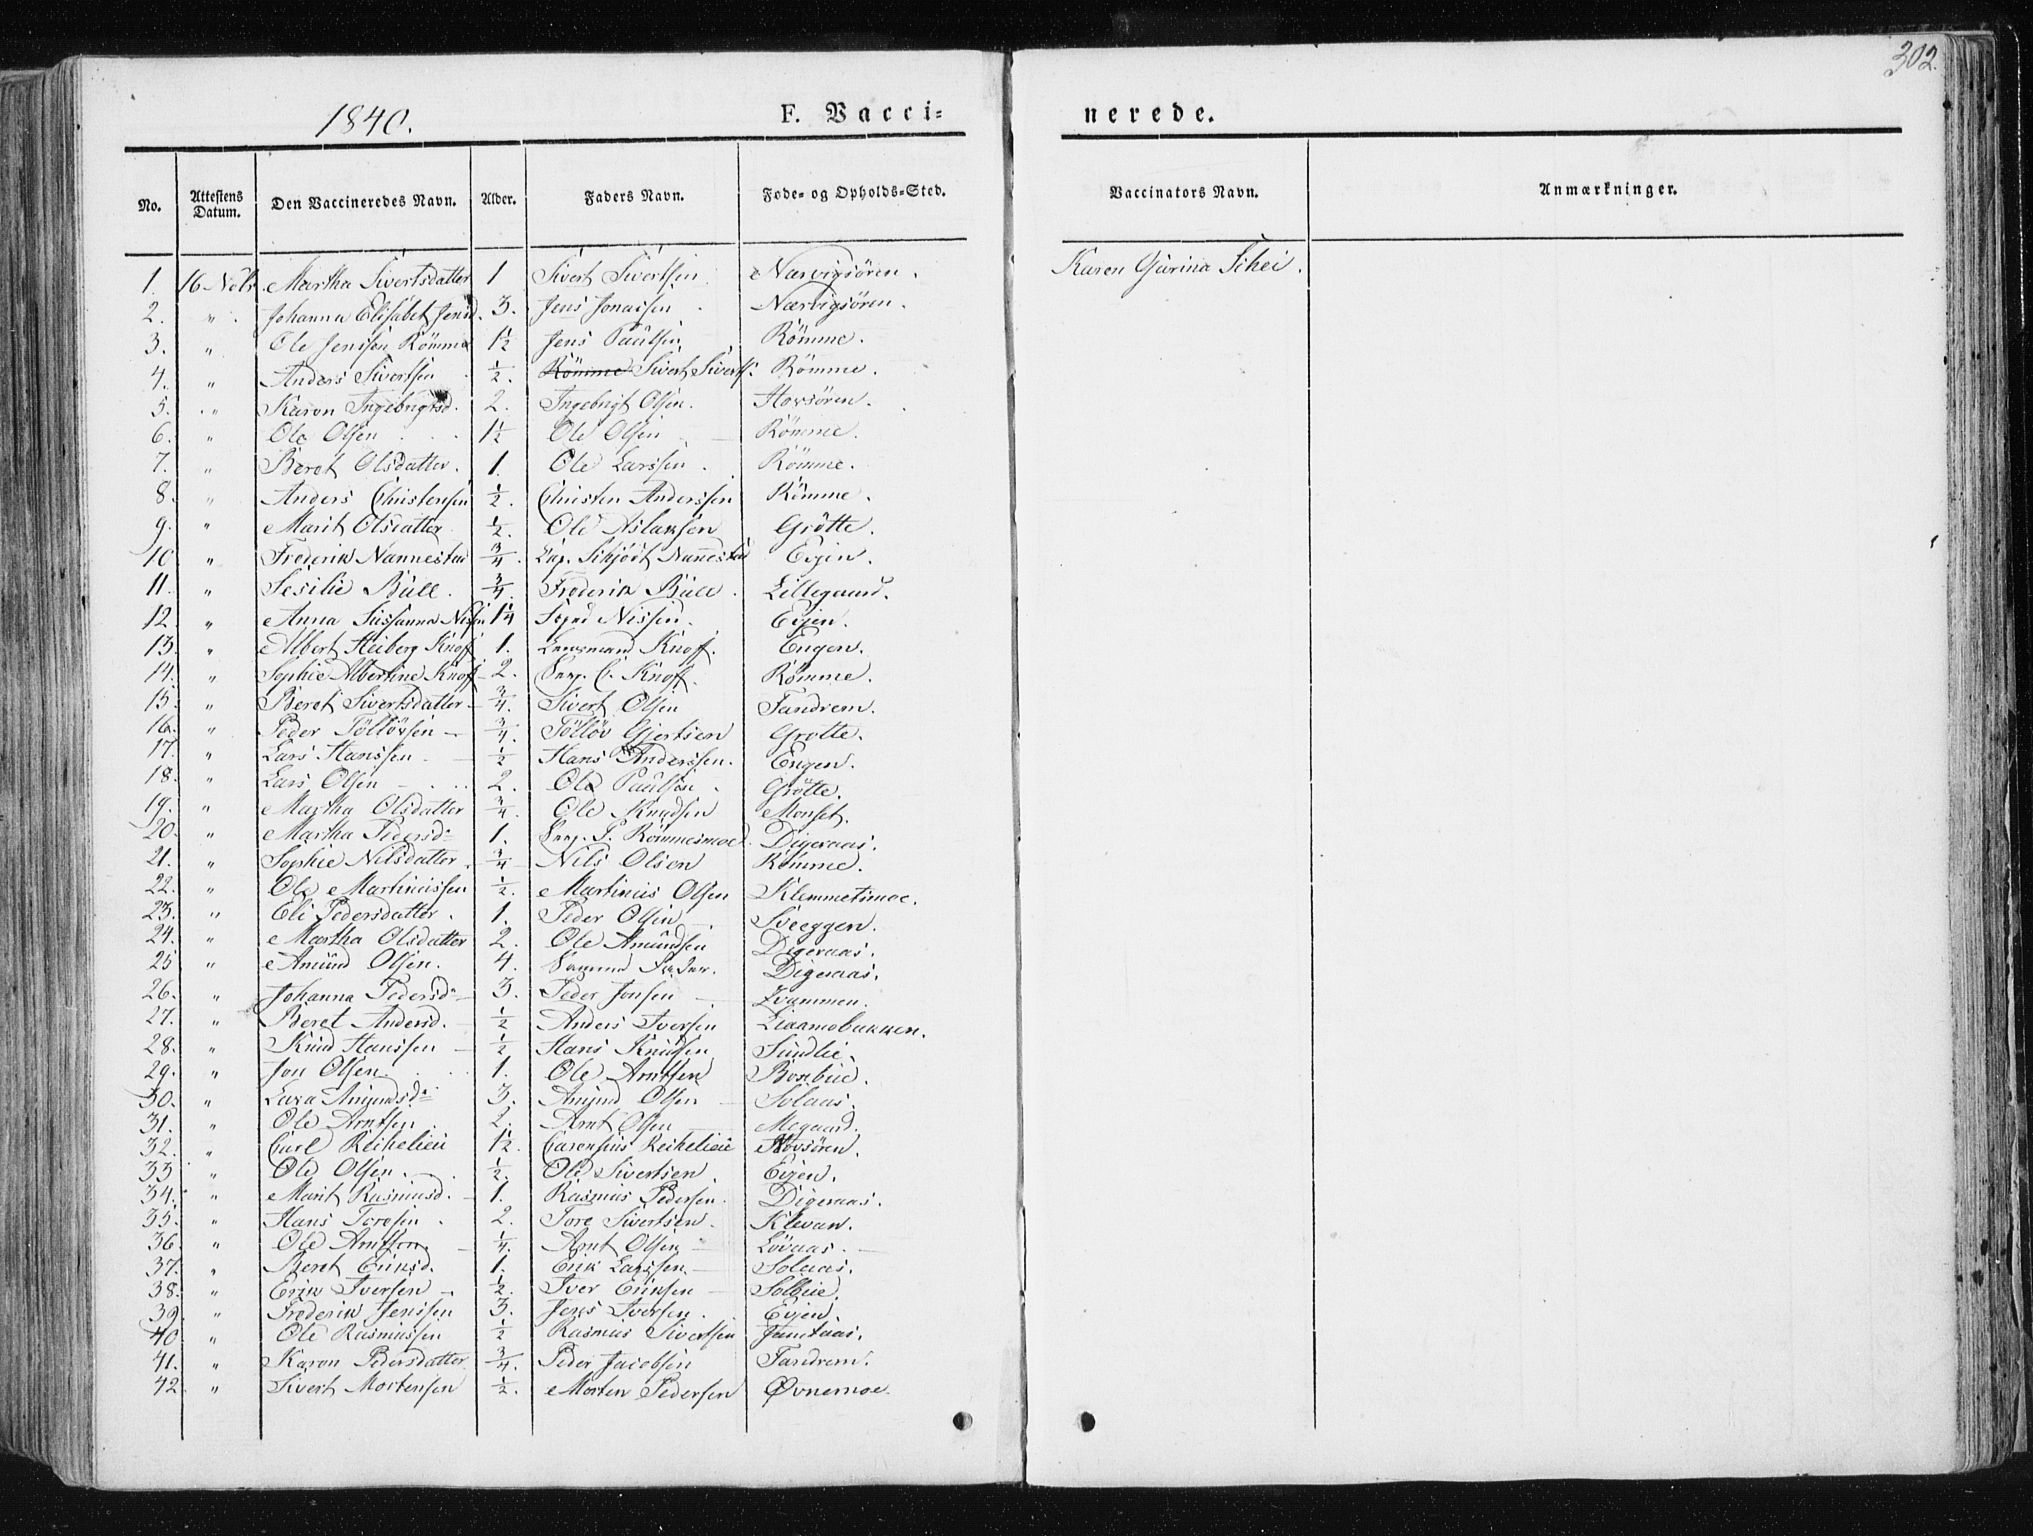 302.
1840.
F. Vacci=
nerede.
No. Attestens Datum. Den Vaccineredes Navn. Alder. Faders Navn. Føde- og Opholds-Sted. Vaccinators Navn. Anmærkninger.
1. 16 Nvbr. Martha Sivertsdatter 1 Sivert Sivertsen Nærvigsören. Karen Gurina Schei.
2. " Johanna Elisabet Jensd. 3. Jens Jonassen Nærvigsören.
3. " Ole Jenssen Römme 1½ Jens Paulsen Römme.
4. " Anders Sivertsen ½. Römme Sivert Siverts: Römme.
5. " Karen Ingebrigtsd. 2. Ingebrigt Olsen. Hovsören.
6. " Ole Olsen 1½ Ole Olsen Römme.
7. " Beret Olsdatter. 1. Ole Larssen. Römme.
8. " Anders Christensen ½. Christen Anderssen Römme.
9. " Marit Olsdatter ½. Ole Aslaksen Grötte.
10 " Frederik Nannestad ¾. Cap. Schjöt Nannestad Evjen.
11. " Sesilie Büll. ¾. Frederik Büll. Lillegaard.
12. " Anna Susanna Nissen 1¼ Fogd Nissen. Evjen.
13. " Albert Heiberg Knoff 1. Lensmand Knoff. Engen.
14. " Sophie Albertine Knoff 2. Serg. C. Knoff. Römme.
15. " Beret Sivertsdatter ¾. Sivert Olsen Fandrem.
16. " Peder Töllövsen ¾. Töllöv Gjertsen Grötte.
17. " Lars Hanssen ½ Hans Anderssen. Engen.
18. " Lars Olsen 2. Ole Paulsen. Grötte.
19. " Martha Olsdatter ¾. Ole Knudsen Monset.
20 " Martha Pedersd: 1. Serg. P. Römmesmoe. Digeraas.
21. " Sophie Nilsdatter. ¾ Nils Olsen Römme.
22. " Ole Martinussen ½. Martinus Olsen Klemmetsmoe.
23. " Eli Pedersdatter. 1. Peder Olsen Sveeggen.
24. " Martha Olsdatter 2. Ole Amundsen Digeraas.
25 " Amund Olsen. 4. Samme Fader. Digeraas.
26. " Johanna Pedersd: 3. Peder Jonsen Kvammen.
27. " Beret Andersd. ½ Anders Iversen Liaamobakken.
28. " Knud Hanssen ½ Hans Knudsen Sundlie.
29. " Jon Olsen 1. Ole Arntsen Boxbue.
30. " Lava Amundsd: 3. Amund Olsen Solaas.
31. " Ole Arntsen 2. Arnt Olsen Megaard.
32. " Carl Reichelieu 1½. Carensius Reichelieu Hovsören.
33 " Ole Olsen. ½. Ole Sivertsen. Evjen.
34. " Marit Rasmusd. 1. Rasmus Pedersen. Digeraas.
35. " Hans Toresen. 2. Tore Sivertsen. Klevan.
36. " Ole Arntsen. ¼. Arnt Olsen Lövaas.
37. " Beret Eriksd. 1. Erik Larssen. Solaas.
38. " Erik Iversen ½. Iver Eriksen Solbue.
39. " Frederik Jenssen 3. Jens Iversen. Evjen.
40 " Ole Rasmussen ½ Rasmus Sivertsen Jamtaas.
41. " Karen Pedersdatter ¾. Peder Jacobsen Fandrem.
42. " Sivert Mortensen ½. Morten Pedersen Øvnemoe.